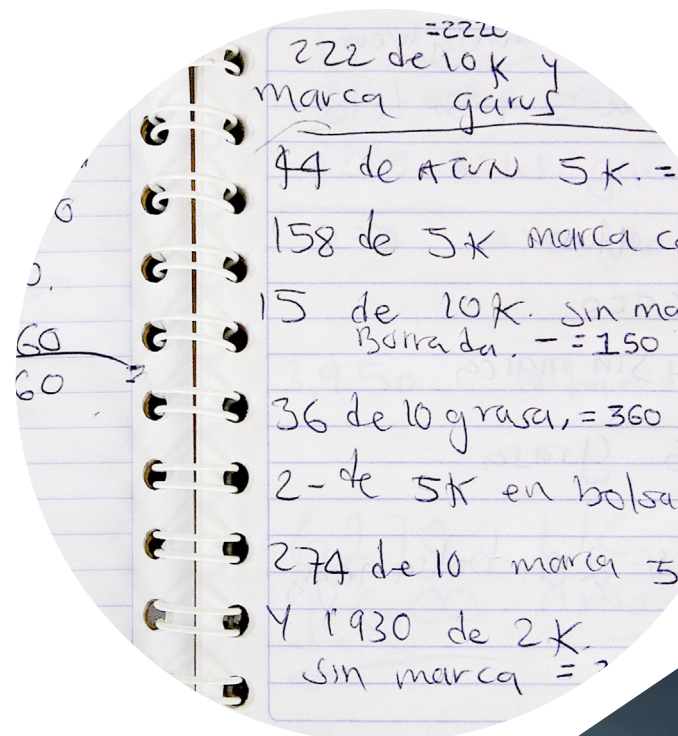 0
0.
60
60
=2220
222 de 10K y
marca garus
44 de ACUN 5K. =
158 de 5K marca
15 de 10K. sin
Borrada. - = 150
36 de 10 grasa, = 360
2- de 5K en bolsa
274 de 10 marca
Y 1930 de 2K.
sin marca =